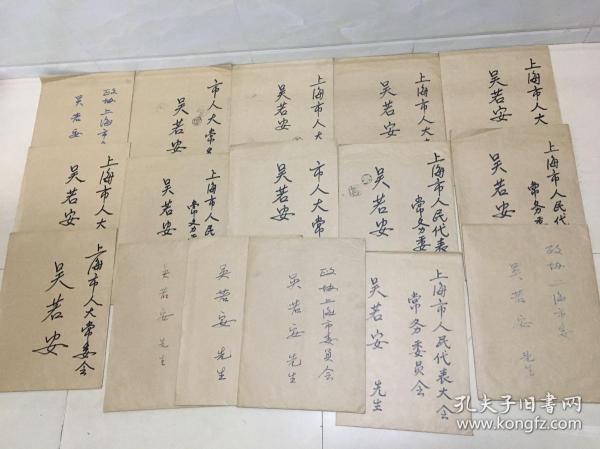 政协上海市
吴若安
市人大常
吴若安
上海市人大
吴若安
上海市人大
吴若安
上海市人大
吴若安
上海市人大
吴若安
上海市人民
常务
吴若安
市人大常
吴若安
上海市人民代表
常务委
吴若安
上海市人民代
常务
吴若安
上海市人大常委会
吴若安
吴若安 先生
吴若安 先生
政协上海市委员会
吴若安 先生
上海市人民代表大会
常务委员会
吴若安 先生
政协上海市委
吴若安 先生
孔夫子旧书网